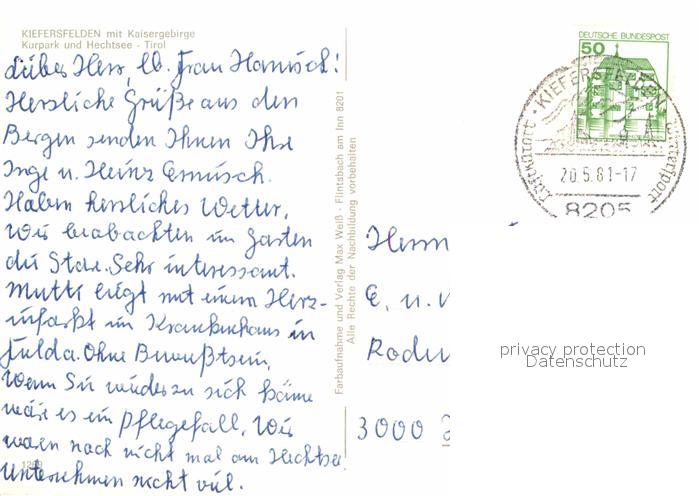 KIEFERSFELDEN mit Kaisergebirge
Kurpark und Hechtsee - Tirol
Lieber Herr, lb. Frau Hanisch!
Herzliche Grüße aus den
Bergen senden Ihnen Ihre
Inge u. Heinz
Haben herrliches Wetter,
Wir beobachten im Garten
die Stare. Sehr interessant.
Mutti liegt mit einem Herz-
infarkt im Krankenhaus in
Fulda. Ohne Bewußtsein.
Wenn Sie wieder zu sich käme
wäre es ein Pflegefall. Wir
waren noch nicht mal am Hechtsee
Unternehmen nicht viel.
Farbaufnahme und Verlag Max Weiß · Flintsbach am Inn 8201
Alle Rechte der Nachbildung vorbehalten
DEUTSCHE BUNDESPOST
50
KIEFERSFELDEN
Luftkurort · Wintersport
20.5.81-17
8205
Herrn
E. u.
Rodu
3000
privacy protection
Datenschutz